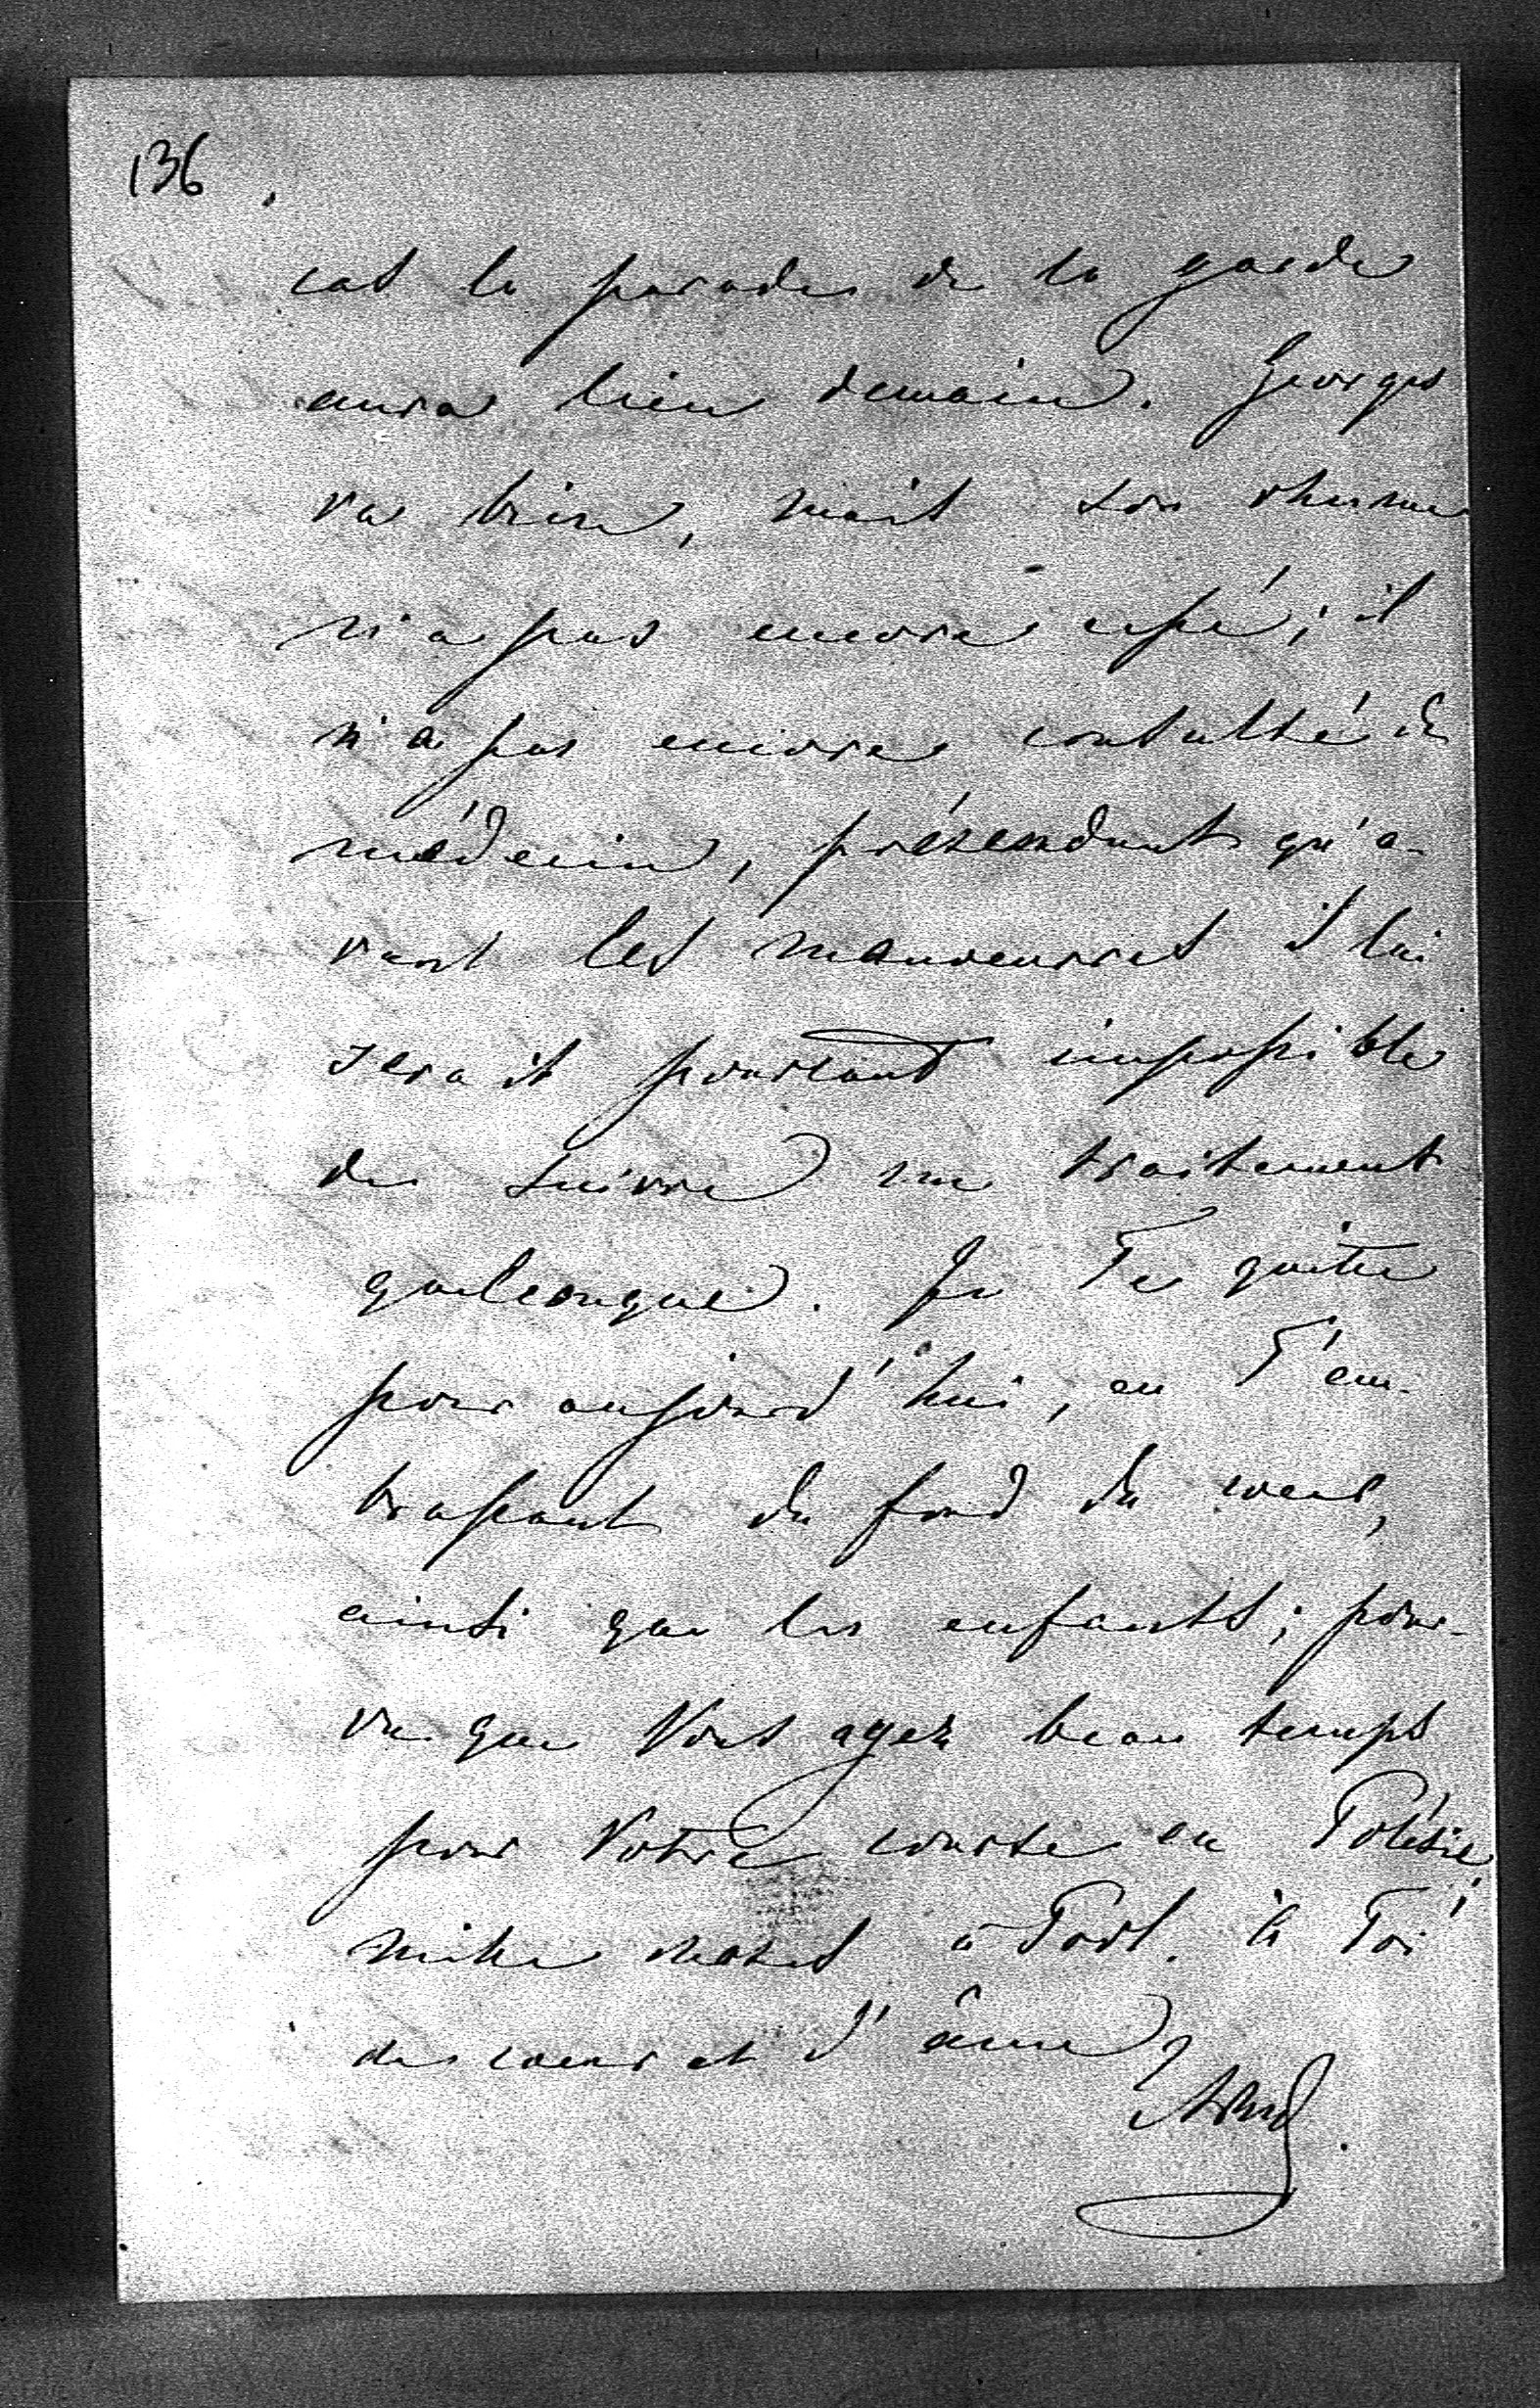 136
cas la parade de la garde
aura lieu demain. Georges
va bien, mais son rhume
n'a pas encore cessé; il
n'a pas encore consulté de
médecin, prétendant qu'a-
vant les manoeuvres il lui
serait pourtant impossible
de suivre un traitement
quelconque. Je Te quitte
pour aujourd'hui, en T'em-
brassant du fond du coeur,
ainsi que les enfants; pour-
vu que Vous ayez beau temps
pour Votre course en
mille choses à à Toi
de coeur et d'âme